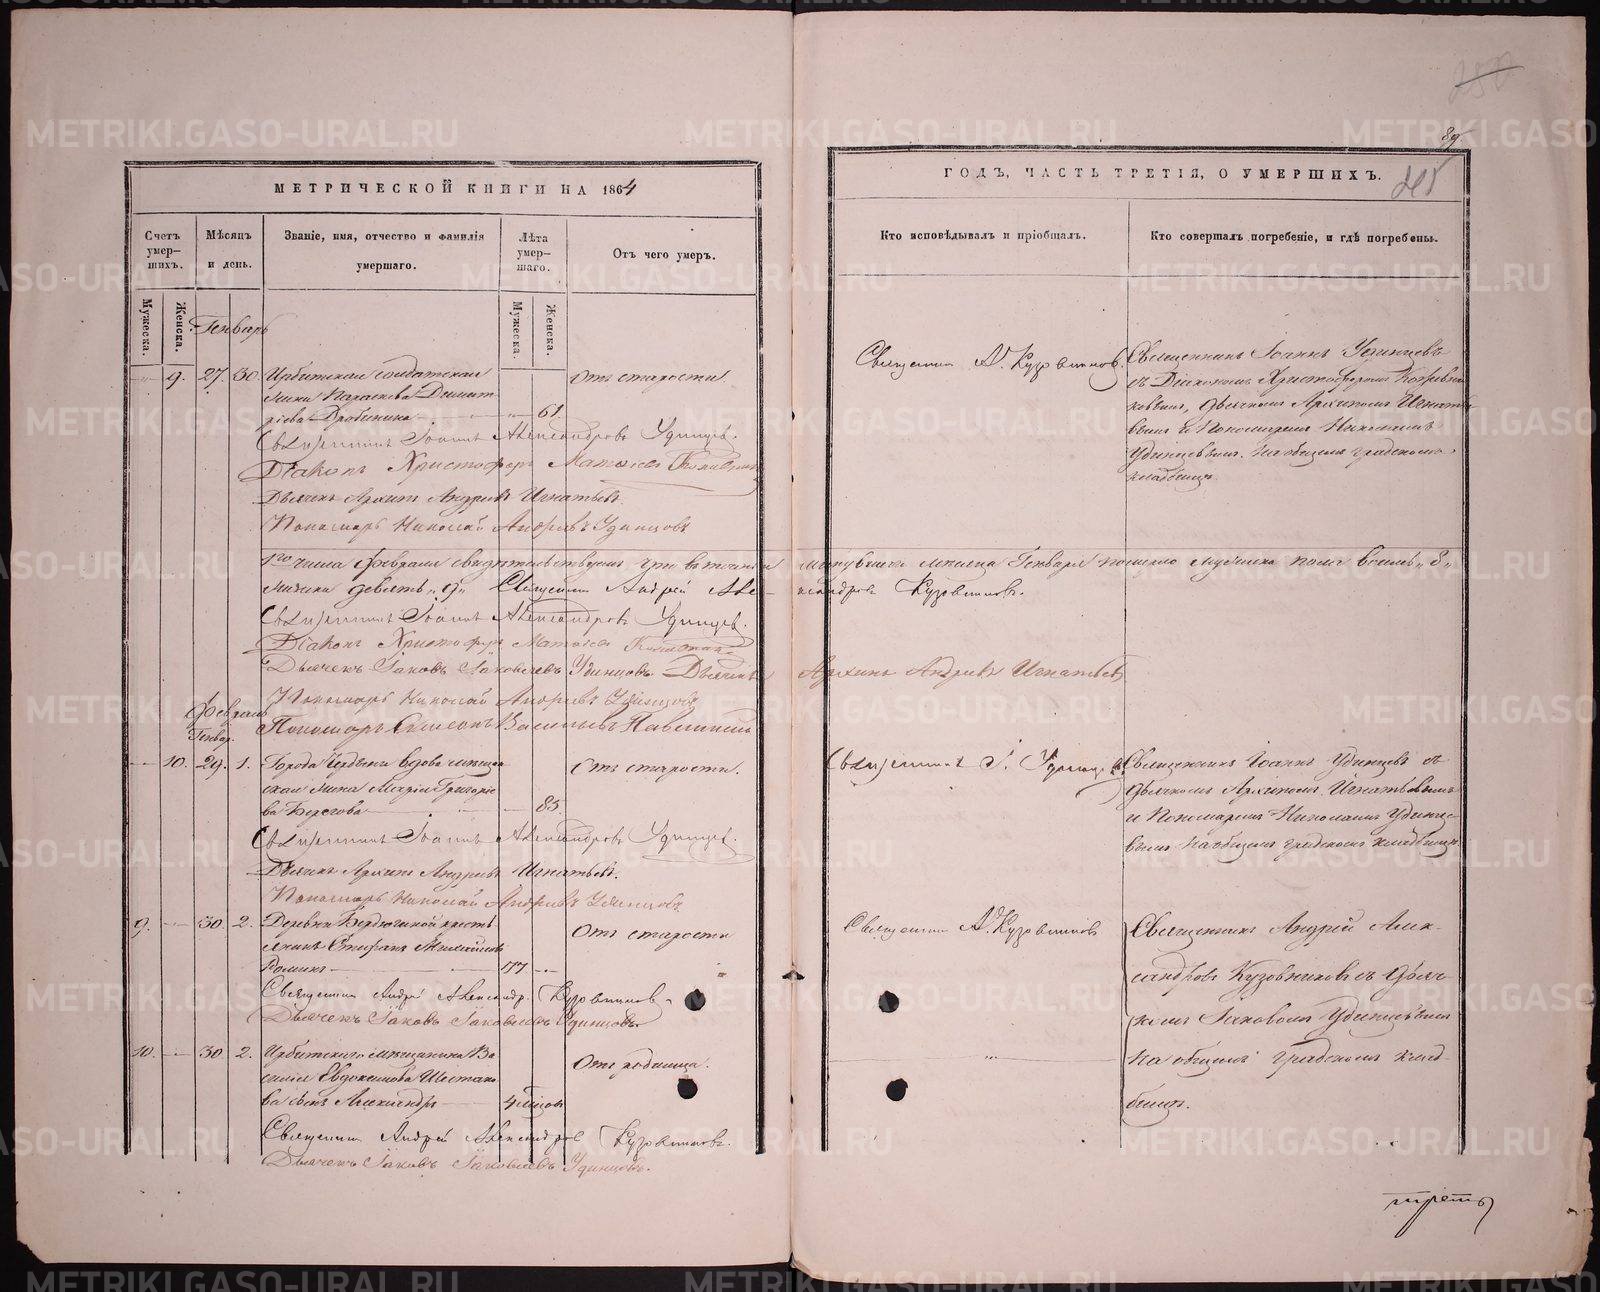 89
МЕТРИЧЕСКОЙ КНИГИ НА 1864
ГОДЪ, ЧАСТЬ ТРЕТІЯ, О УМЕРШИХЪ.
Счетъ умер-
шихъ.
Мѣсяцъ
и день.
Званіе, имя, отчество и фамилія
умершаго.
Лѣта
умер-
шаго.
Отъ чего умеръ.
Кто исповѣдывалъ и пріобщалъ.
Кто совершалъ погребеніе, и гдѣ погребены.
Мужеска.
Женска.
Мужеска.
Женска.
Генварь
9. 27. 30. Ирбитская солдатская
жена Параскева Димит
ріева 61
Отъ старости.
Священникъ А. Кузовниковъ.
Священникъ Іоаннъ Удинцевъ
съ Діакономъ Христофоромъ
дьячкомъ Архипомъ Игнать
вымъ и Пономаремъ Николаемъ
Удинцевымъ. На общемъ градскомъ
кладбищѣ.
Священникъ Іоаннъ Александровъ Удинцевъ.
Діаконъ Христофоръ Матѳіевъ
Дьячекъ Архипъ Андреевъ Игнатьевъ.
Пономарь Николай Андреевъ Удинцовъ
1го числа Февраля свидѣтельствуемъ что въ
мѣсяца Генваря померло мужеска пола восмь „8„
женска девять „9„ Священникъ Андрей Александровъ Кузовниковъ.
Священникъ Іоаннъ Александровъ Удинцевъ.
Діаконъ Христофоръ Матѳіевъ
Дьячекъ Іаковъ Іаковлевъ Удинцовъ. Дьячекъ Архипъ Андреевъ Игнатьевъ
Пономарь Николай Андреевъ Удинцовъ
Пономарь Симеонъ Васильевъ
Февраль
Генвар.
10. 29. 1. Города мѣщан
ская жена Марія Григоріе
ва 85.
Отъ старости.
Священникъ І. Удинцевъ
Священникъ Іоаннъ Удинцевъ съ
дьячкомъ Архипомъ Игнатьевымъ
и Пономаремъ Николаемъ Удинце-
вымъ. На общемъ градскомъ кладбищѣ.
Священникъ Іоаннъ Александровъ Удинцевъ.
Дьячекъ Архипъ Андреевъ Игнатьевъ.
Пономарь Николай Андреевъ Удинцовъ
9. 30. 2. Деревни Бердюгиной кресть
янинъ Стефанъ Михайловъ
77
Отъ старости
Священникъ А. Кузовниковъ
Священникъ Андрей Алек-
сандровъ Кузовниковъ съ дьяч-
комъ Іаковомъ Удинцевымъ
на общемъ градскомъ клад-
бищѣ.
Священникъ Андрей Александр. Кузовниковъ.
Дьячекъ Іаковъ Іаковлевъ Удинцовъ.
10. 30. 2. Ирбитскаго мѣщанина Ва
силія Евдокимова Шестако
ва сынъ Александръ 4 мѣсяцовъ
Отъ родимца.
Священникъ Андрей Александровъ Кузовниковъ.
Дьячекъ Іаковъ Іаковлевъ Удинцовъ.
METRIKI.GASO-URAL.RU